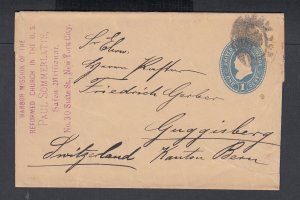 HARBOR MISSION OF THE
REFORMED CHURCH IN THE U.S.
PAUL SOMMERLATTE,
Hafen Missionar,
No. 30 State St., New York City.
Sr. Ehrw.
Herrn Pastor
Friedrich Gerber
Guggisberg
Switzerland Kanton Bern
1